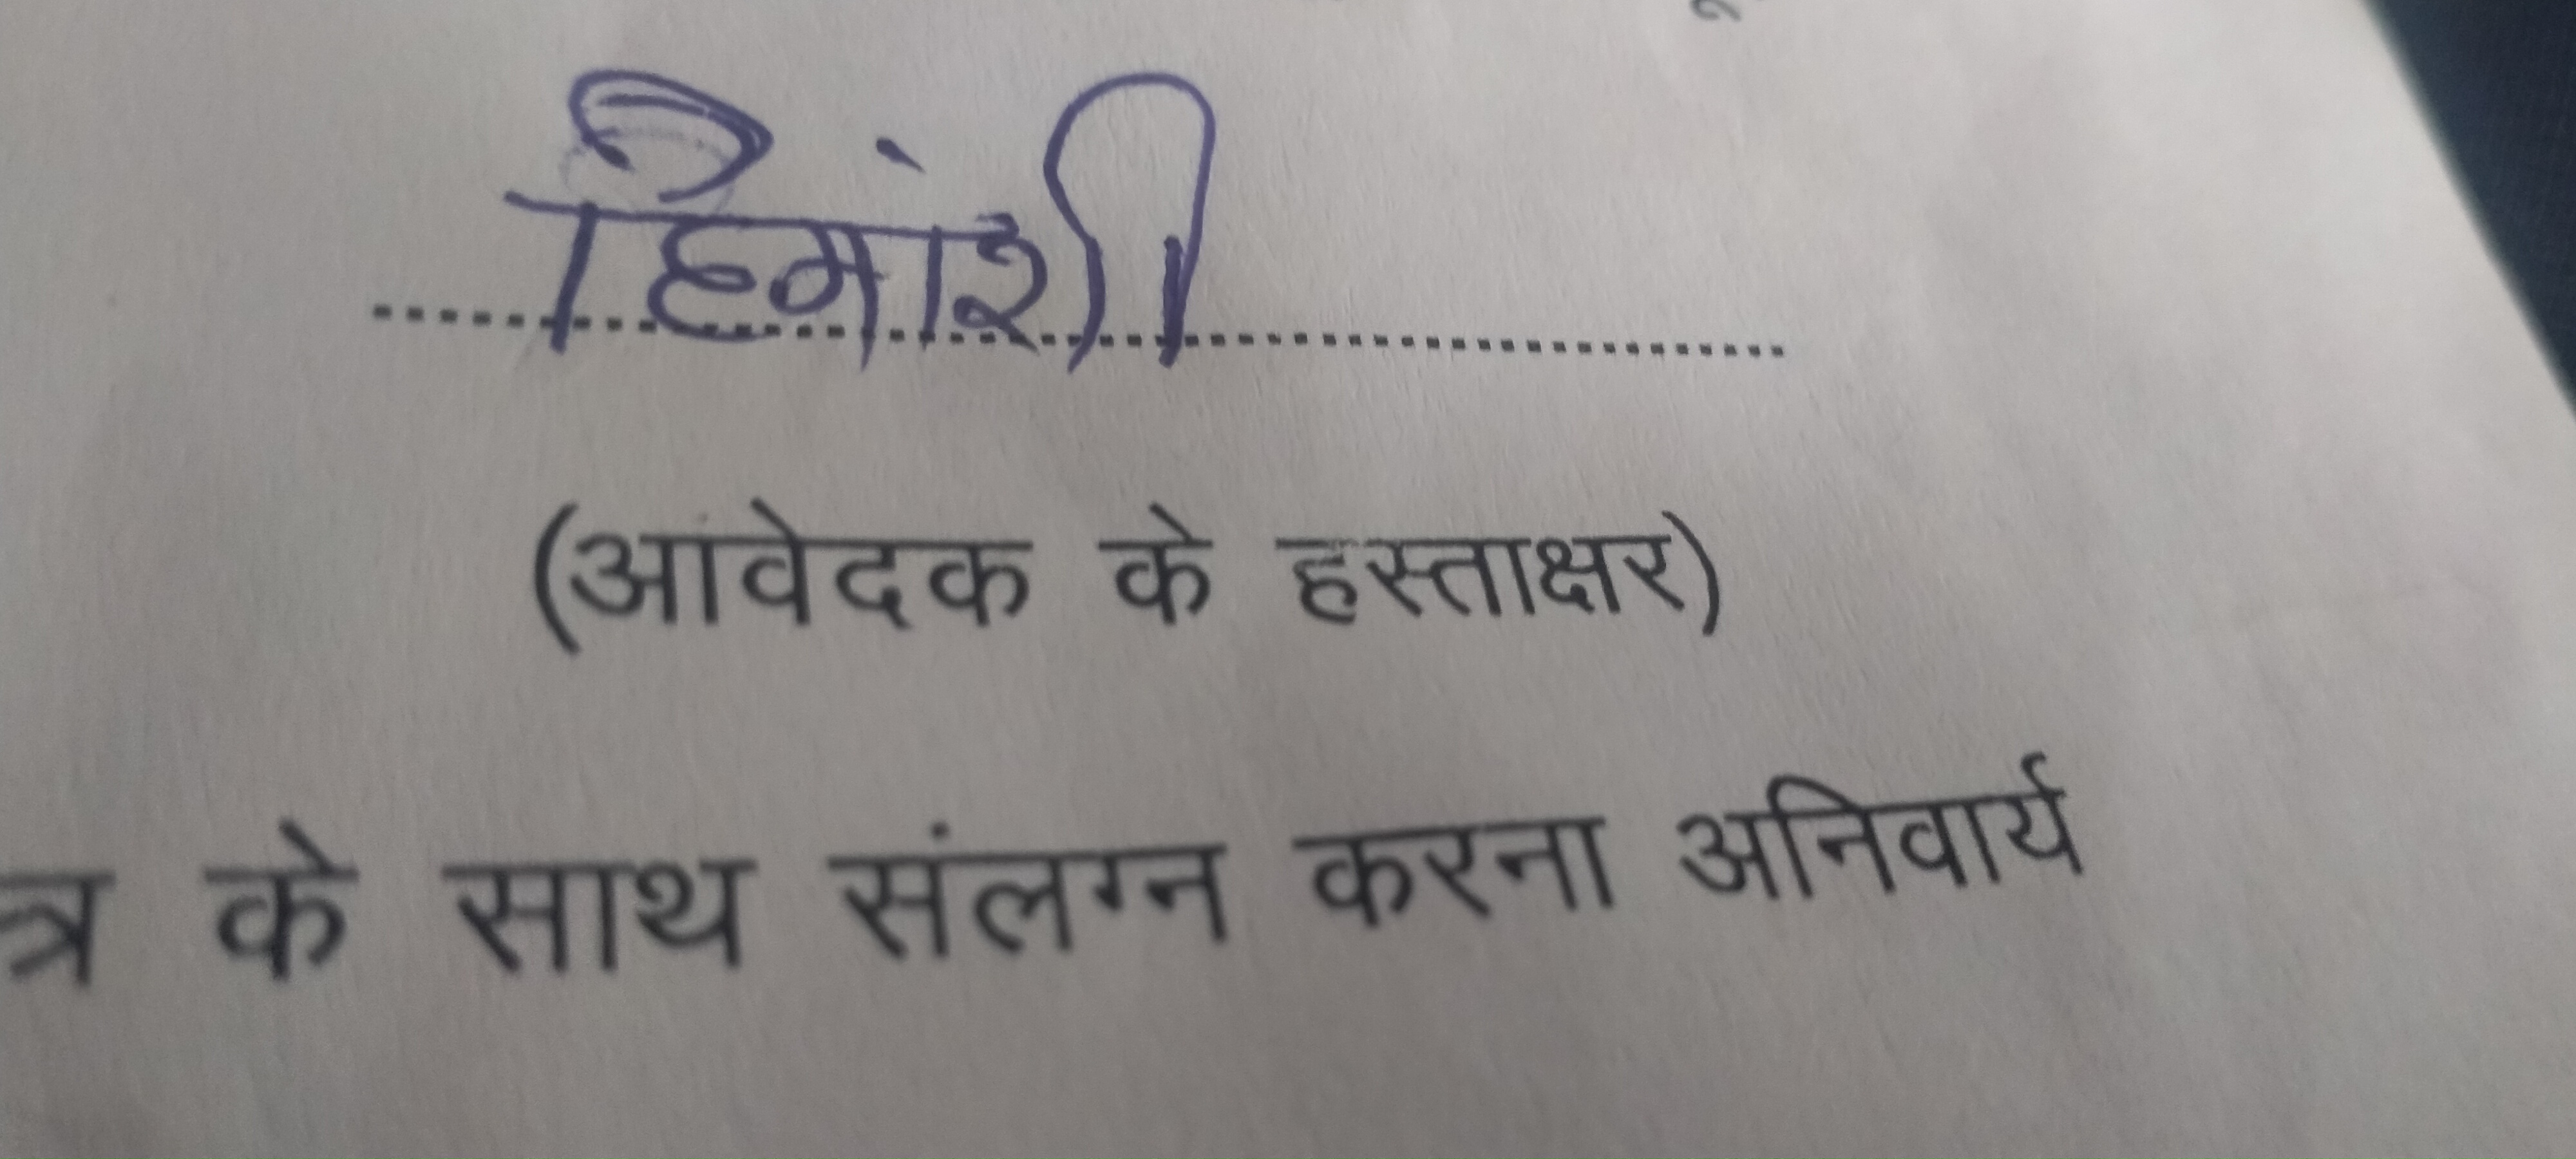 हिमांशी
(आवेदक के हस्ताक्षर)
त्र के साथ संलग्न करना अनिवार्य